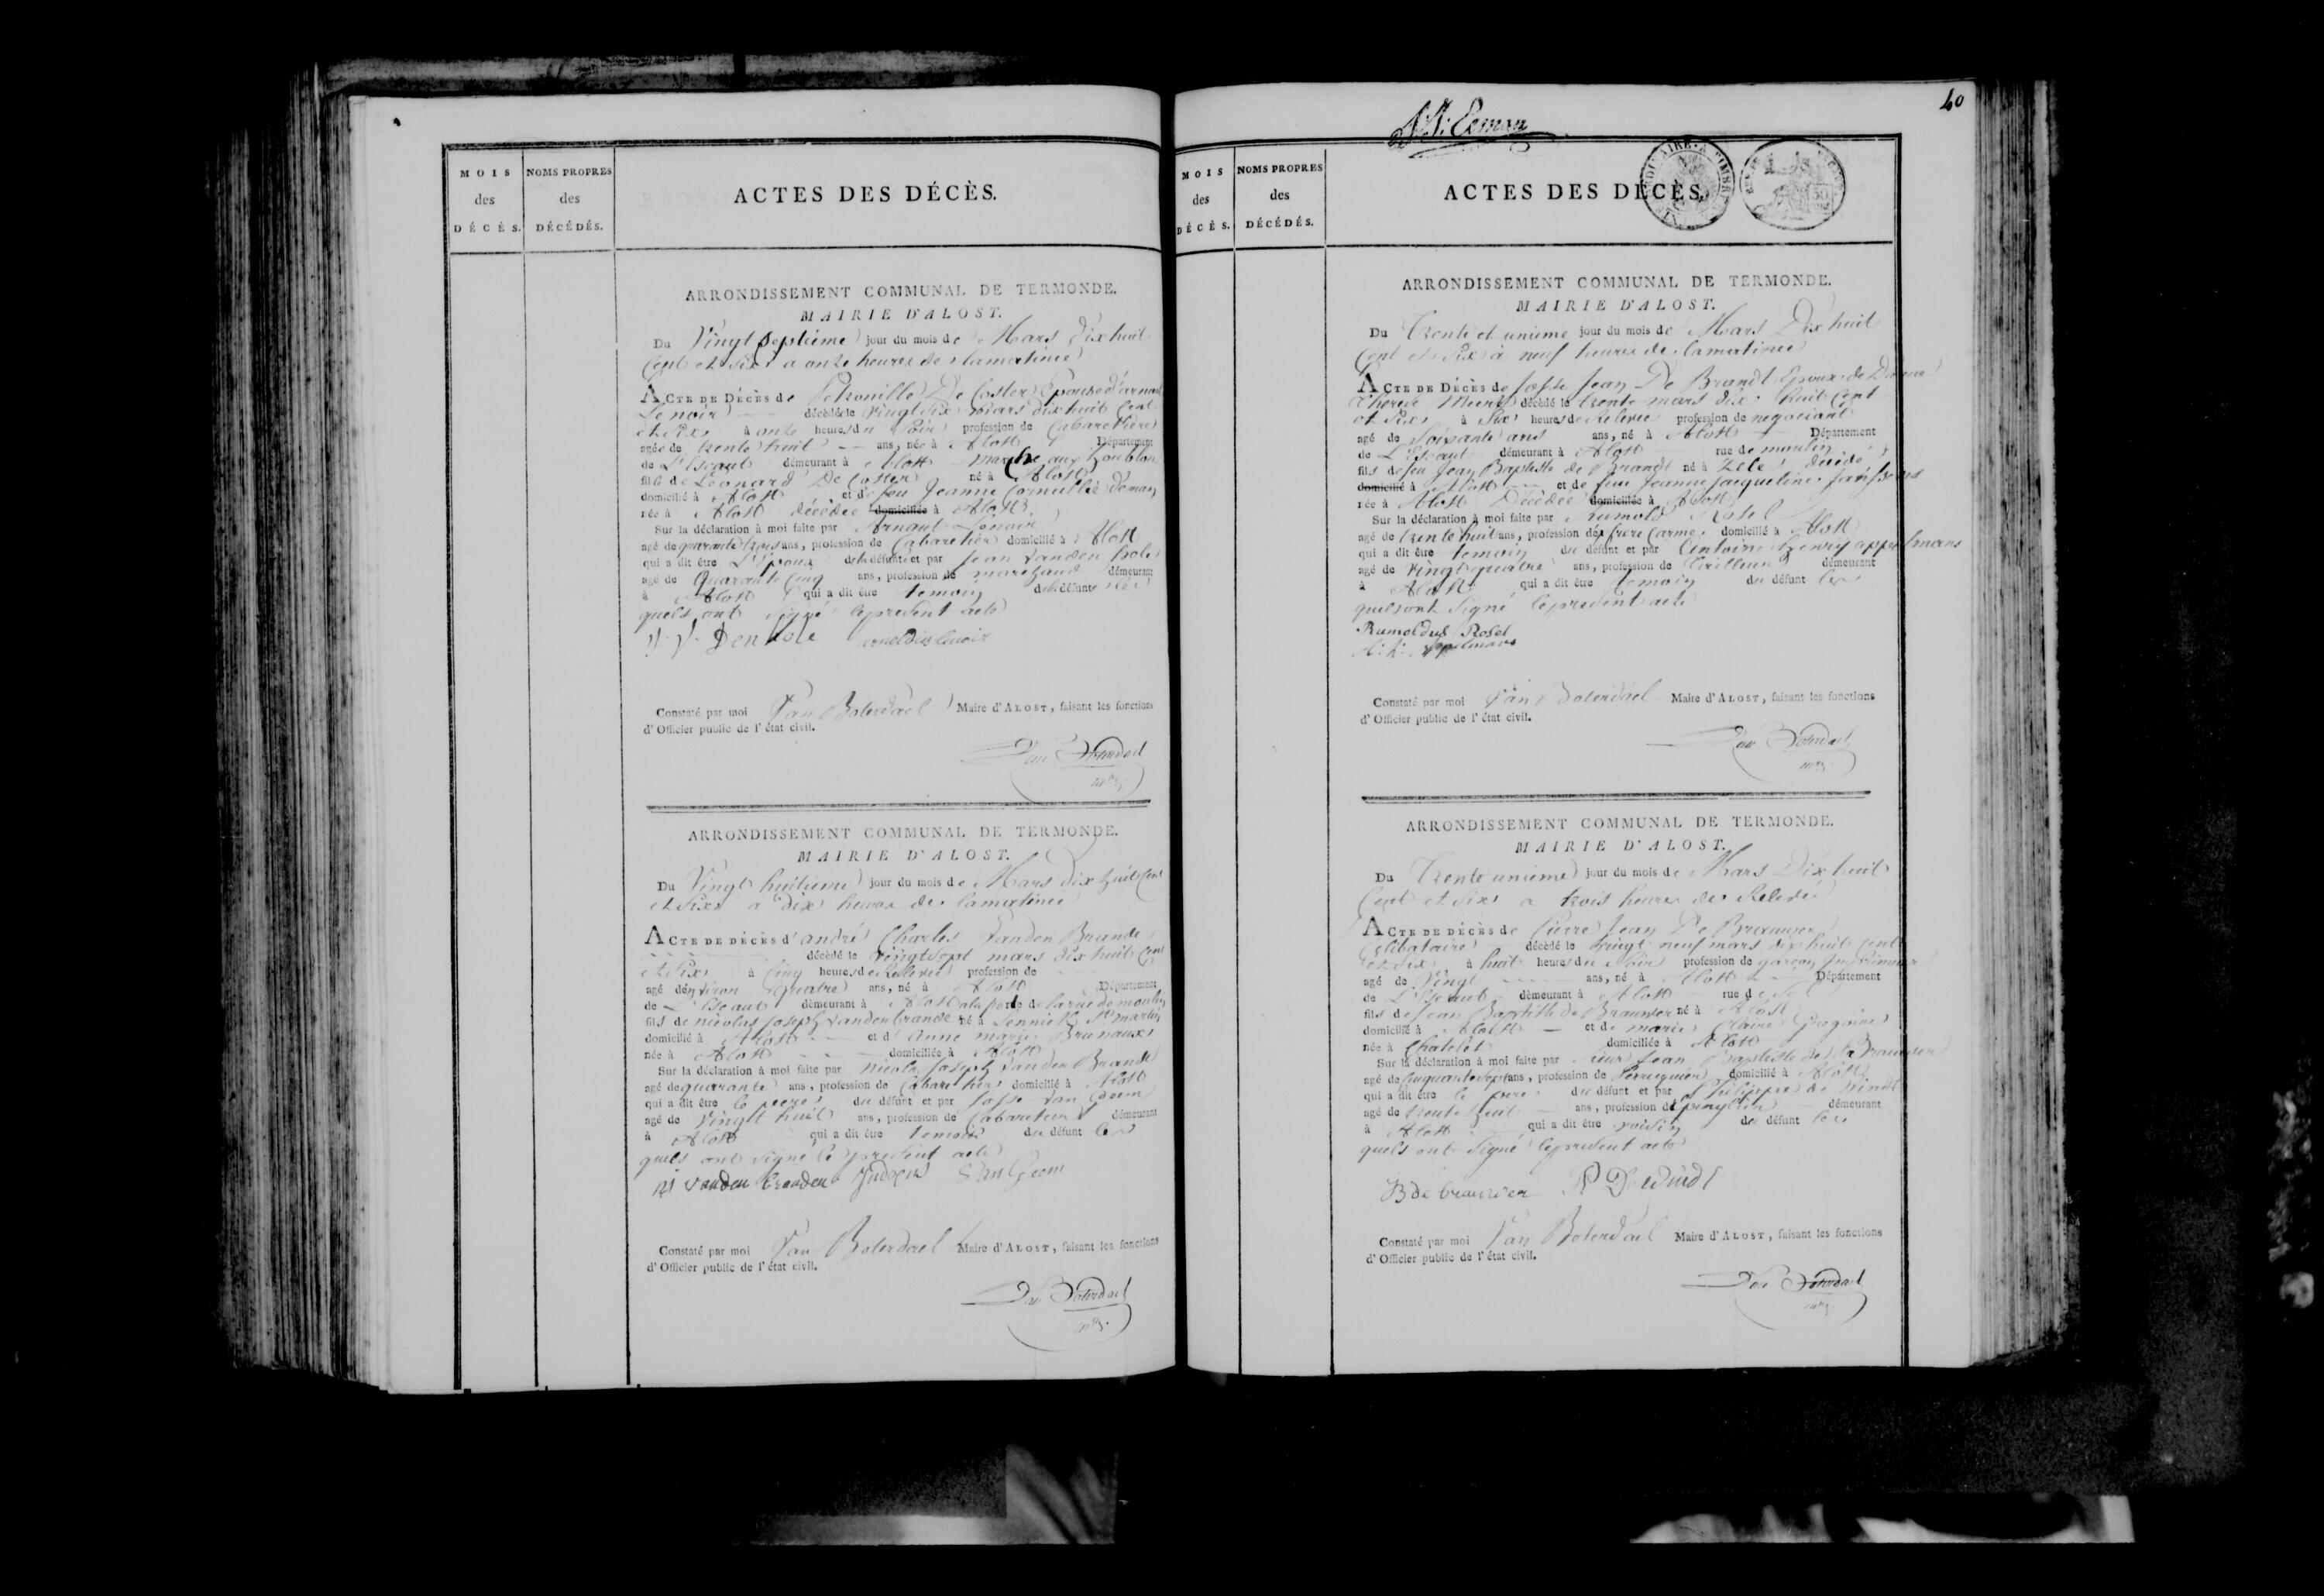 MOIS
des
DÉCÈS.
NOMS PROPRES
des
DÉCÉDÉS.
ACTES DES DÉCÈS.
ARRONDISSEMENT COMMUNAL DE TERMONDE.
MAIRIE D'ALOST.
Du Vingt septieme jour du mois de Mars dix huit
Cent et Six a onze heures de lamatinée
ACTE DE DÉCÈS de Petronille De Coster Epouse d'arnaut
Lenoir décédée le vingt Six mars dix huit Cent
et Six à onze heures du Soir profession de Cabaretiere
agée de trente huit ans, née à Alost Département
de L'Escaut démeurant à Alost marche aux houblon
fille de Leonard De Coster né à Alost
domicilié à Alost et de feu Jeanne Cornellie
née à Alost décédée domiciliée à Alost
Sur la déclaration à moi faite par Arnaut Lenoir
agé de quarante trois ans, profession de Cabaretier domicilié à Alost
qui a dit être L'Epoux de la défunte et par Jean vanden hole
agé de Quarante Cinq ans, profession de marchand démeurant
à Alost qui a dit être temoin de la défunte les
quels ont signé le present acte
Constaté par moi Van Boterdael Maire d'ALOST, faisant les fonctions
d'Officier public de l'état civil.
Van Boterdael
ARRONDISSEMENT COMMUNAL DE TERMONDE.
MAIRIE D'ALOST.
Du Vingt huitieme jour du mois de Mars dix huit Cent
et Six a dix heures de lamatinée
ACTE DE DÉCÈS d'andré Charles Vanden Brande
décédé le vingt Sept mars dix huit Cent
et Six à Cinq heures de Relevée profession de
agé d'environ quatre ans, né à Alost Département
de L'Escaut démeurant à Alost a la porte de la rue de moulin
fils de nicolas Joseph vanden brande né à Lennick St martin
domicilié à Alost et d'Anne marie Brunaux
née à Alost domiciliée à Alost
Sur la déclaration à moi faite par nicolas Joseph Vanden Brande
agé de quarante ans, profession de Cabaretier domicilié à Alost
qui a dit être le peere du défunt et par Josse van Geem
agé de Vingt huit ans, profession de Cabareteur démeurant
à Alost qui a dit être temoin du défunt les
quels ont signé le present acte
Constaté par moi Van Boterdael Maire d'ALOST, faisant les fonctions
d'Officier public de l'état civil.
Van Boterdael
40
MOIS
des
DÉCÈS.
NOMS PROPRES
des
DÉCÉDÉS.
ACTES DES DÉCÈS.
ARRONDISSEMENT COMMUNAL DE TERMONDE.
MAIRIE D'ALOST.
Du Trente et unieme jour du mois de Mars Dix huit
Cent et Six à neuf heures de lamatinée
ACTE DE DÉCÈS de Josse Jean De Brandt Epoux de Dame
Therese décédé le trente mars dix huit Cent
et Six à Six heures de Relevée profession de negociant
agé de Soixante ans ans, né à Alost Département
de L'Escaut démeurant à Alost rue de moulin
fils de feu Jean Baptiste de Brandt né à Zele décédé
domicilié à Alost et de feue Jeanne Jacqueline
née à Alost Décédée domiciliée à Alost
Sur la déclaration à moi faite par Rumold Rosel
agé de trente huit ans, profession d'ex frere Carme domicilié à Alost
qui a dit être temoin du défunt et par Antoine henry appelmans
agé de vingt quatre ans, profession de tailleur démeurant
à Alost qui a dit être temoin du défunt les
quels ont signé le present acte
Rumoldus Rosel
Constaté par moi Van Boterdael Maire d'ALOST, faisant les fonctions
d'Officier public de l'état civil.
Van Boterdael
ARRONDISSEMENT COMMUNAL DE TERMONDE.
MAIRIE D'ALOST.
Du Trente unieme jour du mois de Mars Dix huit
Cent et Six a trois heures de Relevée
ACTE DE DÉCÈS de Pierre Jean De Brauwer
Celibataire décédé le vingt neuf mars dix huit Cent
et Six à huit heures du Soir profession de garçon Imprimeur
agé de Vingt ans, né à Alost Département
de L'Escaut démeurant à Alost rue de
fils de Jean Baptiste De Brauwer né à Alost
domicilié à Alost et de marie Claire Gregoire
née à Chatelet domiciliée à Alost
Sur la déclaration à moi faite par Sieur Jean Baptiste de Brauwer
agé de Cinquante Sept ans, profession de Perruquier domicilié à Alost
qui a dit être le pere du défunt et par Philippe de Windt
agé de trente huit ans, profession d'épinglier démeurant
à Alost qui a dit être voisin du défunt les
quels ont signé le present acte
JB de brauwer P De windt
Constaté par moi Van Boterdael Maire d'ALOST, faisant les fonctions
d'Officier public de l'état civil.
Van Boterdael